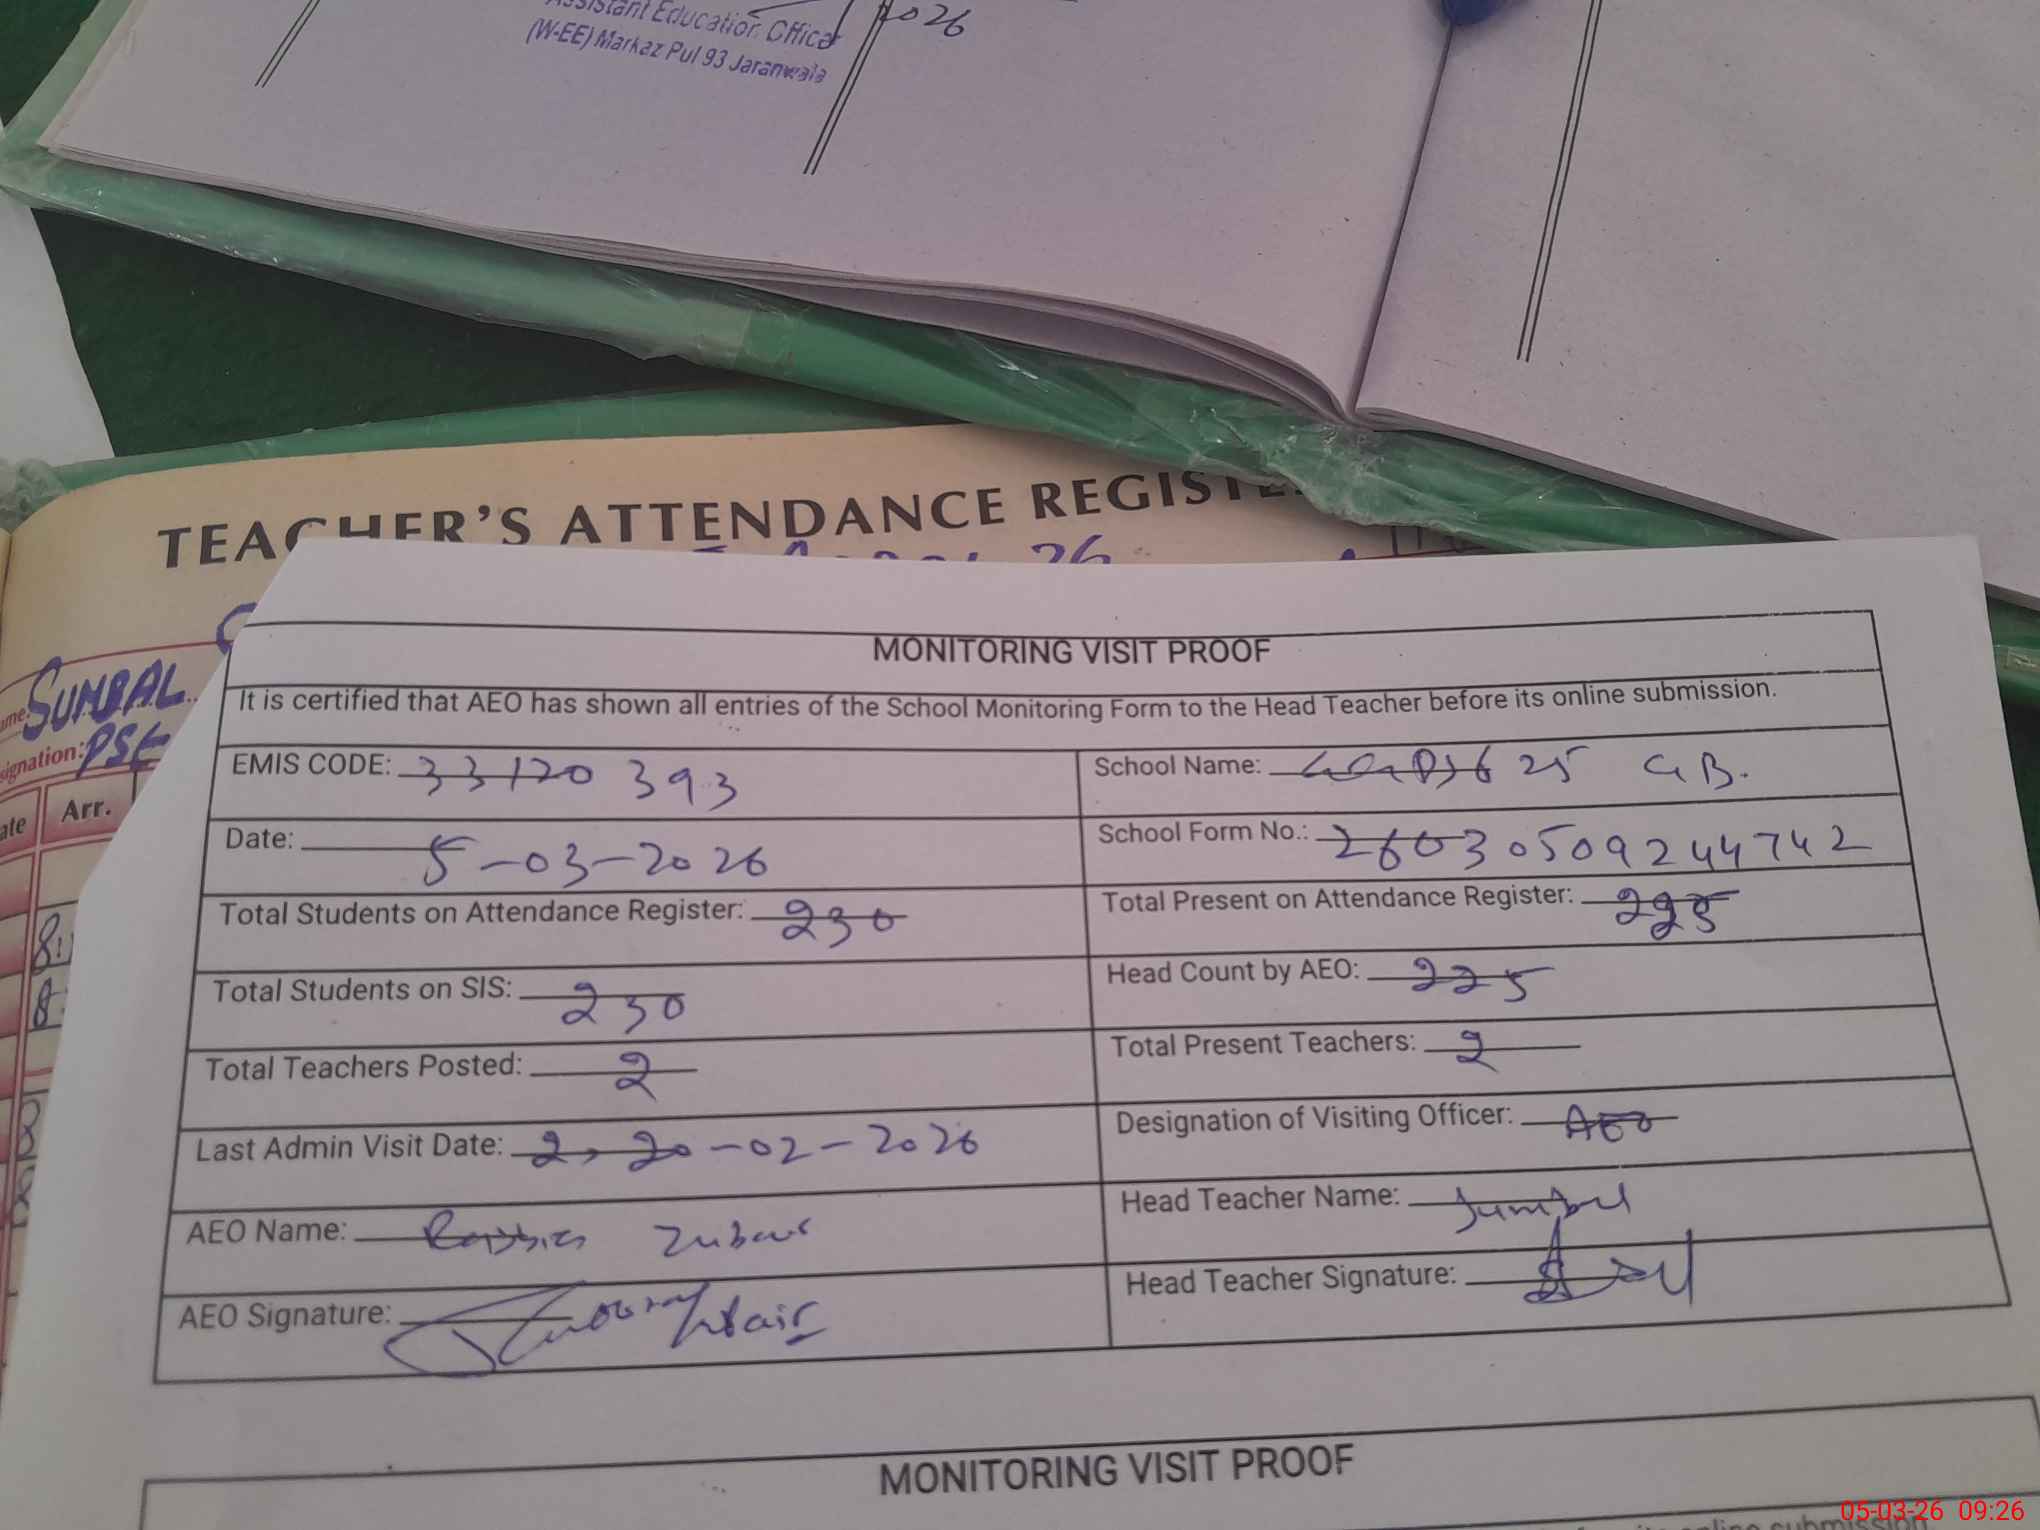 Assistant Education Officer
2026
(W-EE) Markaz Pul 93 Jaranwala
TEACHER'S ATTENDANCE REGISTER
26
SUMBAL
PSE
Arr.
MONITORING VISIT PROOF
It is certified that AEO has shown all entries of the School Monitoring Form to the Head Teacher before its online submission.
EMIS CODE: 33120393
School Name: 625 GB.
Date: 5-03-2026
School Form No.: 26030509244742
Total Students on Attendance Register: 230
Total Present on Attendance Register: 225
Total Students on SIS: 230
Head Count by AEO: 225
Total Teachers Posted: 2
Total Present Teachers: 2
Last Admin Visit Date: 2, 20-02-2026
Designation of Visiting Officer: AEO
AEO Name:
Head Teacher Name: Sumbul
AEO Signature:
Head Teacher Signature:
MONITORING VISIT PROOF
online submission
05-03-26 09:26